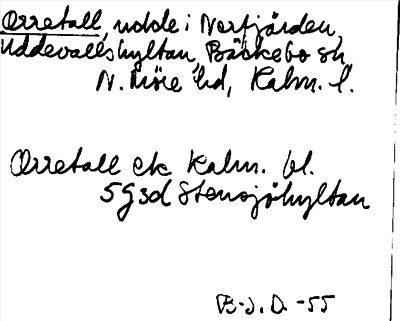 Orretall, udde i Norfjärden,
Uddevallshyltan, Bäckebo sn,
N. Möre hd, Kalm. l.
Orretall ek Kalm. bl.
5G3d Stensjöhyltan
B-J. D. -55